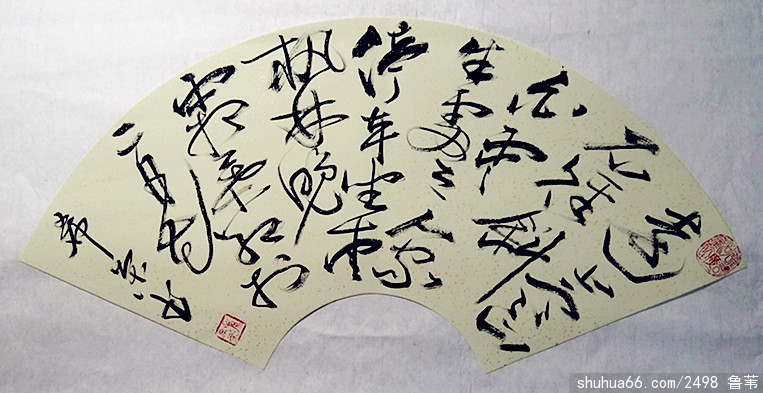 远上寒山
石径斜
白云
生处有人家
停车坐爱
枫林晚
霜叶红于
二月花
shuhua66.com/2498 鲁苇